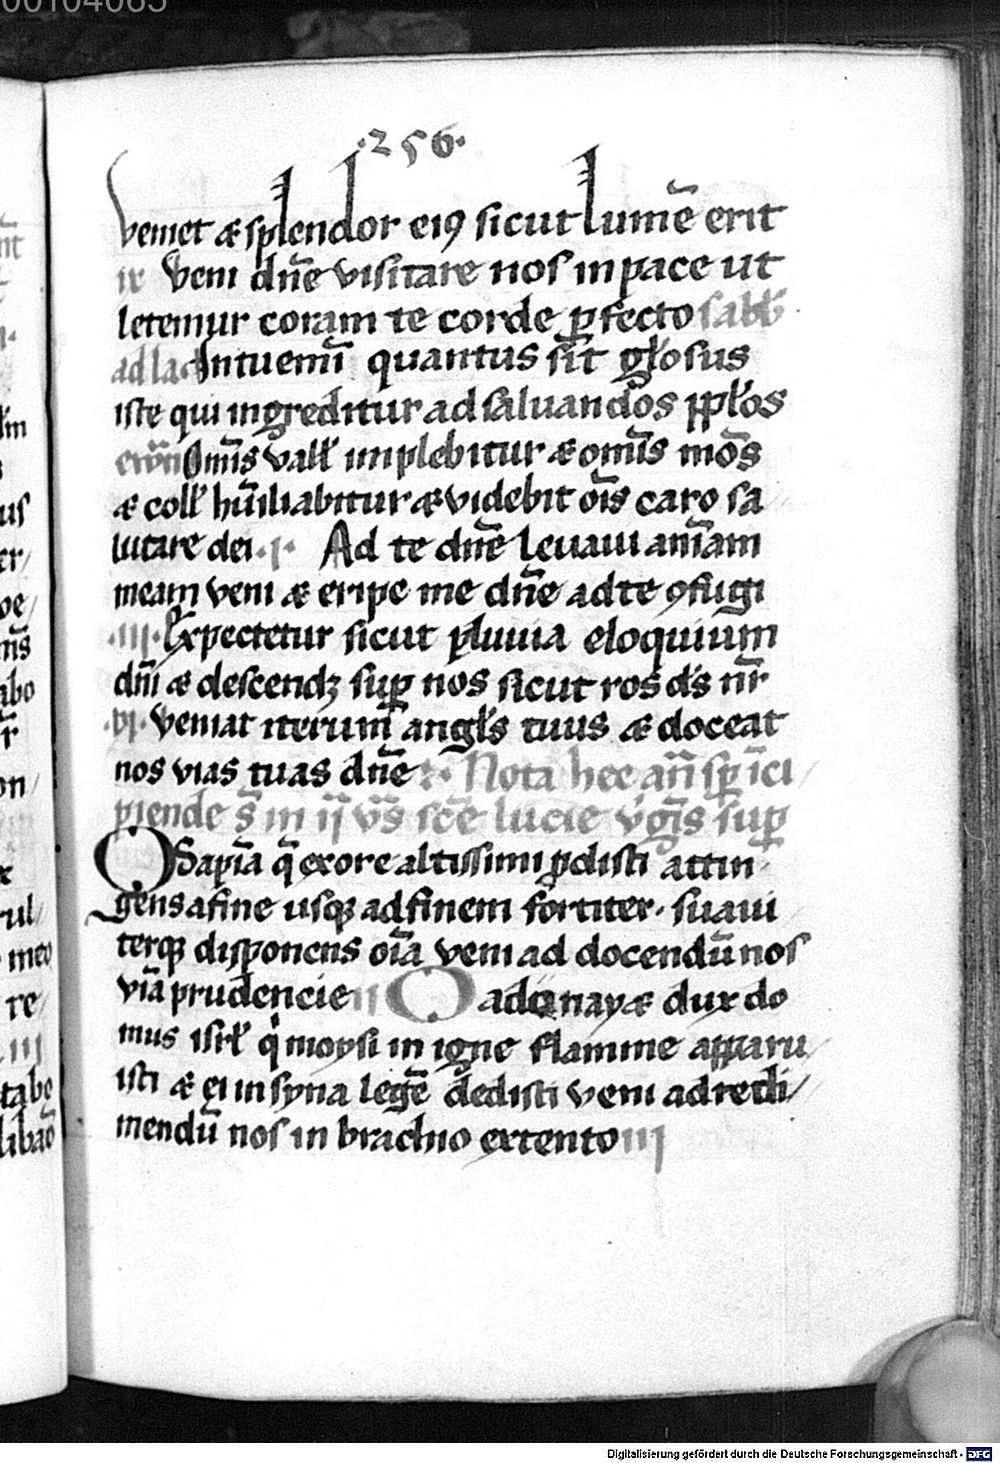 00104085
·256·
veniet æ splendor ei9 sicut lumē erit
ix Veni dn̄e visitare nos in pace ut
letemur coram te corde p̱fecto sabb̄
ad la Intuemī quantus sīt gło sus
iste qui ingreditur ad saluandos pp̄łos
Om̄is vałł implebitur æ om̄is mōs
æ coll̄ hūiliabitur æ videbit oīs caro sa
lutare dei · i · Ad te dn̄e leuaui anīam
meam veni æ eripe me dn̄e ad te 9fugi
·iii· Expectetur sicut pluuia eloquium
dn̄i æ descendꝫ suꝑ nos sicut ros d̄s nr̄
·vi· Veniat iterum angłs tuus æ doceat
nos vias tuas dn̄e · Nota hec an̄ sꝑ īci
piende s̄ in ij vs̄ scē lucie vġīs suꝑ
O Sapīa q̄ ex ore altissimi ꝓdisti attin
gens a fine usqꝫ ad finem fortiter · suaui
terqꝫ disponens oīa veni ad docendū nos
vīa prudencie ii O adonay æ dux do
mus isrł q̇ moysi in igne flamme apparu
isti æ ei in syna legē dedisti veni ad redi/
mendū nos in brachio extento iii
Digitalisierung gefördert durch die Deutsche Forschungsgemeinschaft - DFG